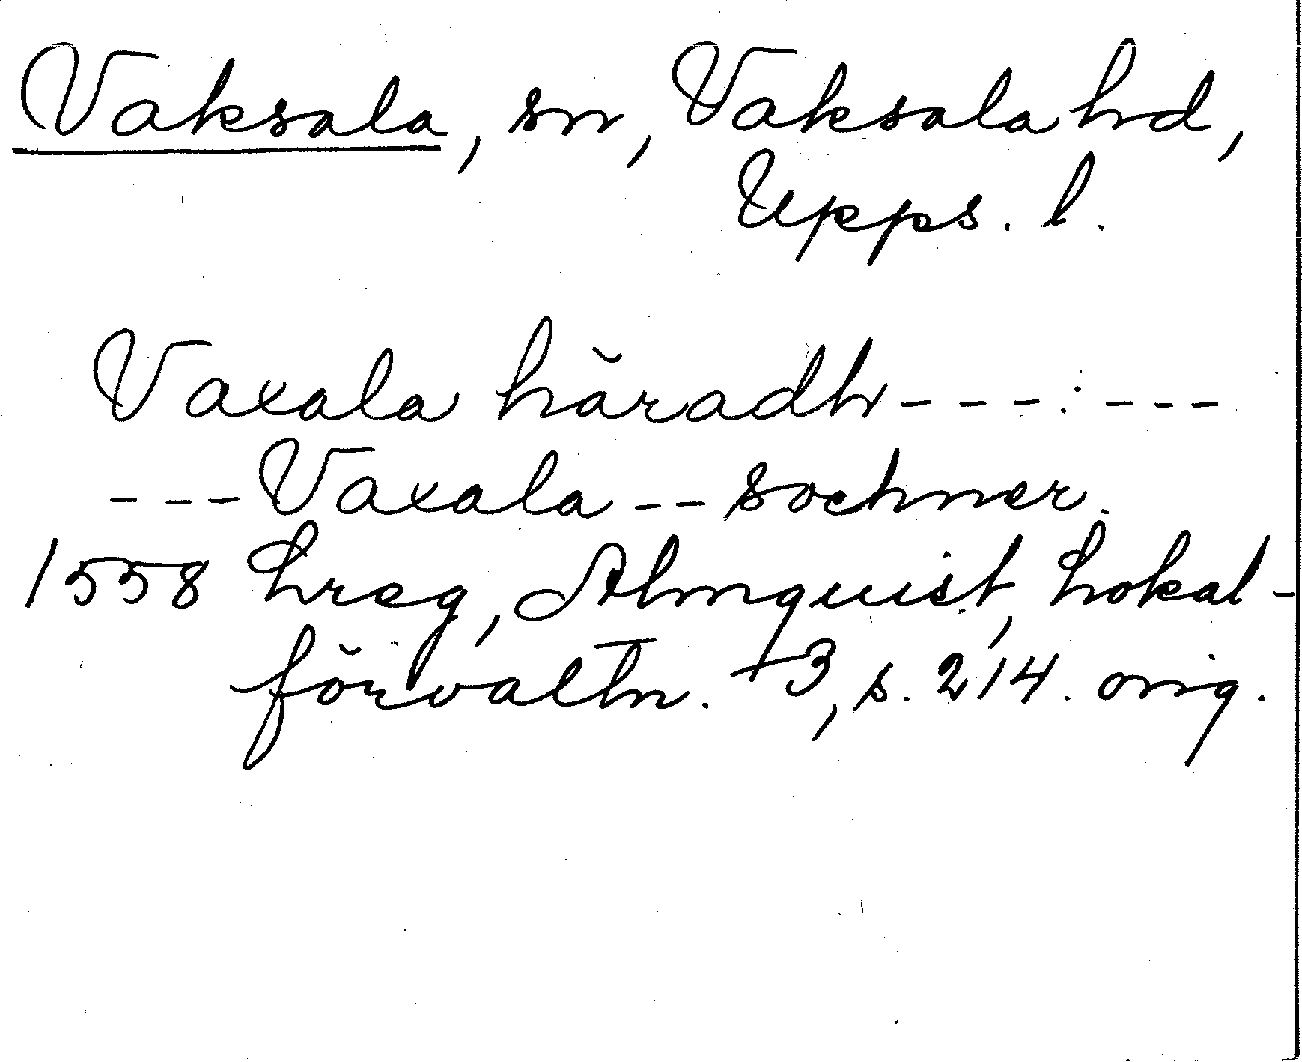 Vaksala, sn, Vaksala hd,
Upps. l.
Vaxala häradh - - - . : - - -
- - - Vaxala - - sochner.
1558 Lreg, Almquist, Lokal-
förvaltn. 3, s. 214. orig.